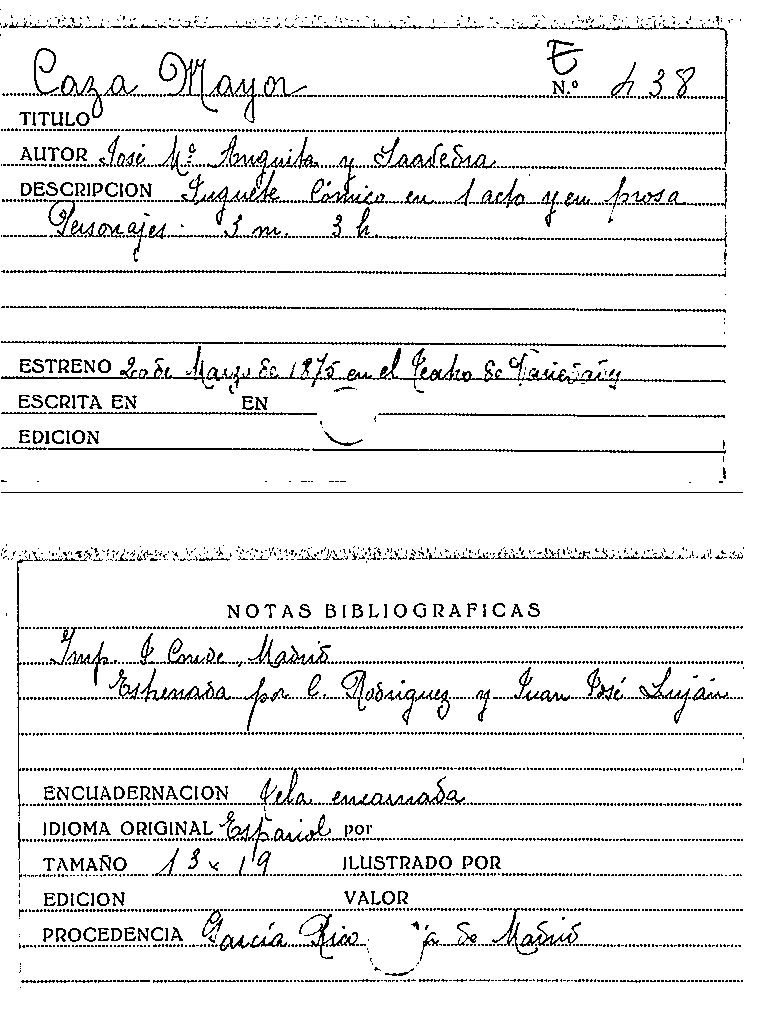 E
Caza Mayor N.º 438
TITULO
AUTOR José Mª Anguita y Saavedra
DESCRIPCION Juguete Cómico en 1 acto y en prosa
Personajes: 3 m. 3 h.
ESTRENO 20 de Marzo de 1875 en el Teatro de Variedades
ESCRITA EN EN
EDICION
NOTAS BIBLIOGRAFICAS
Imp. F Conde, Madrid
Estrenada por C. Rodriguez y Juan José Luján
ENCUADERNACION Tela encarnada
IDIOMA ORIGINAL Español por
TAMAÑO 13 x 19 ILUSTRADO POR
EDICION VALOR
PROCEDENCIA García Rico de Madrid